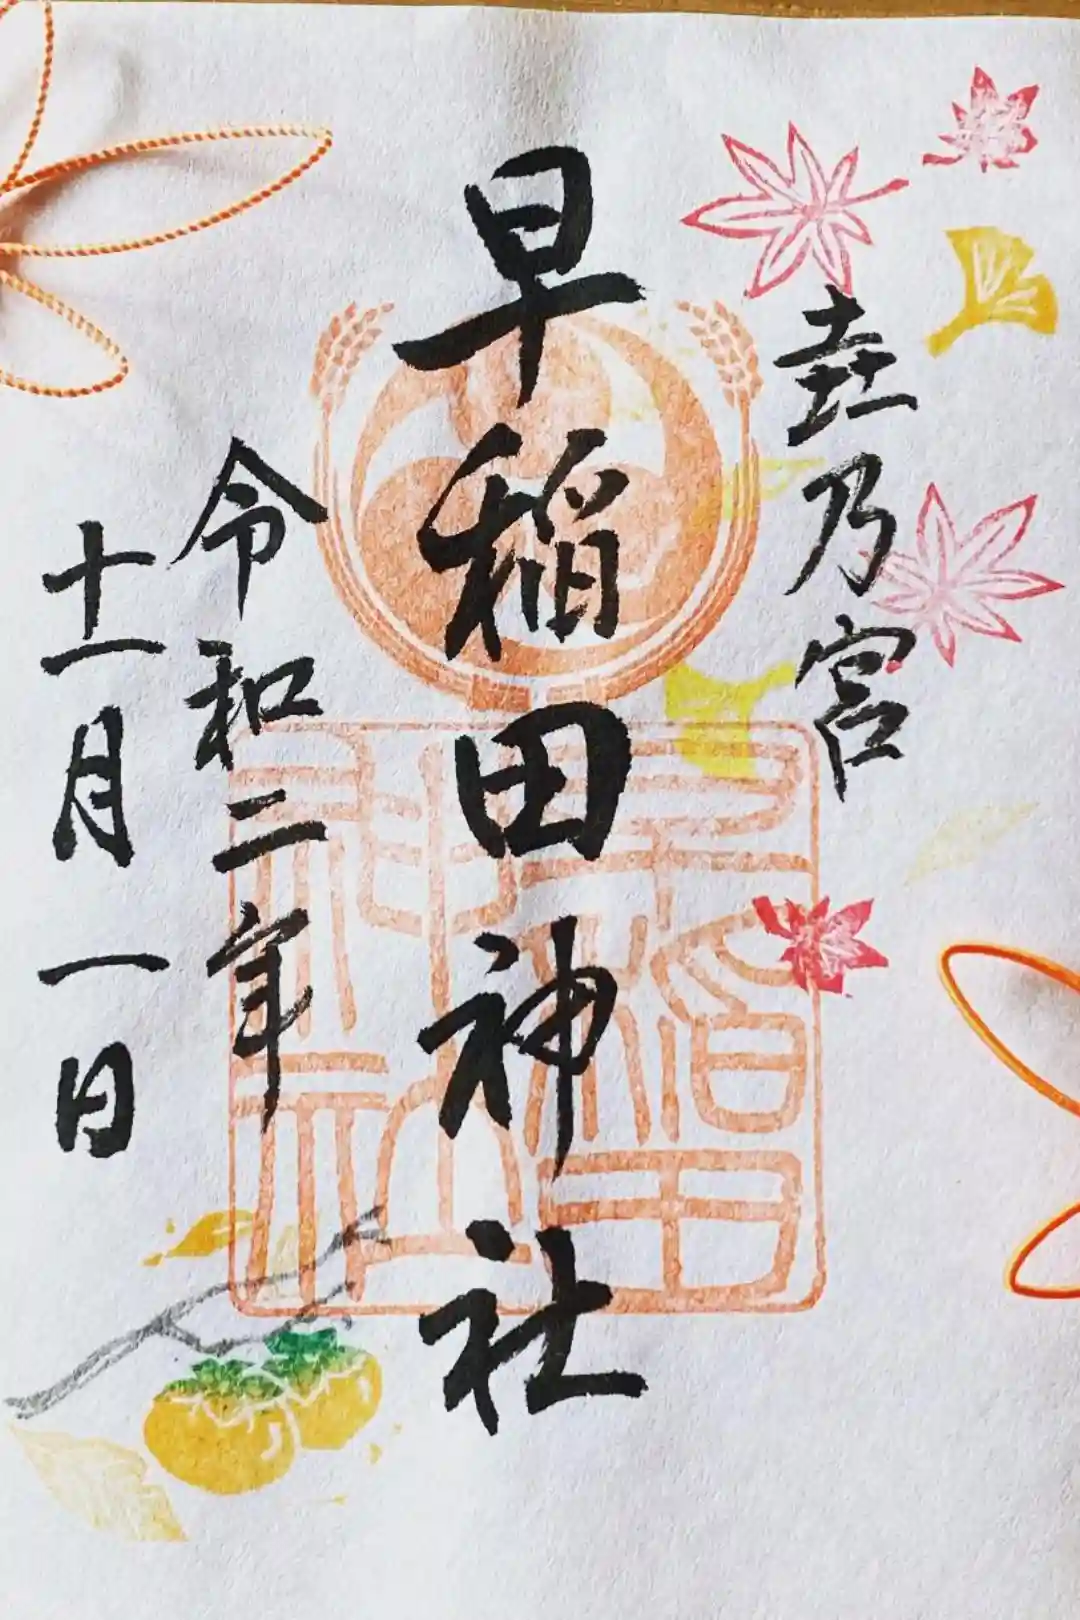 垚乃宮
早稲田神社
令和二年
十一月一日
早稲田
神社